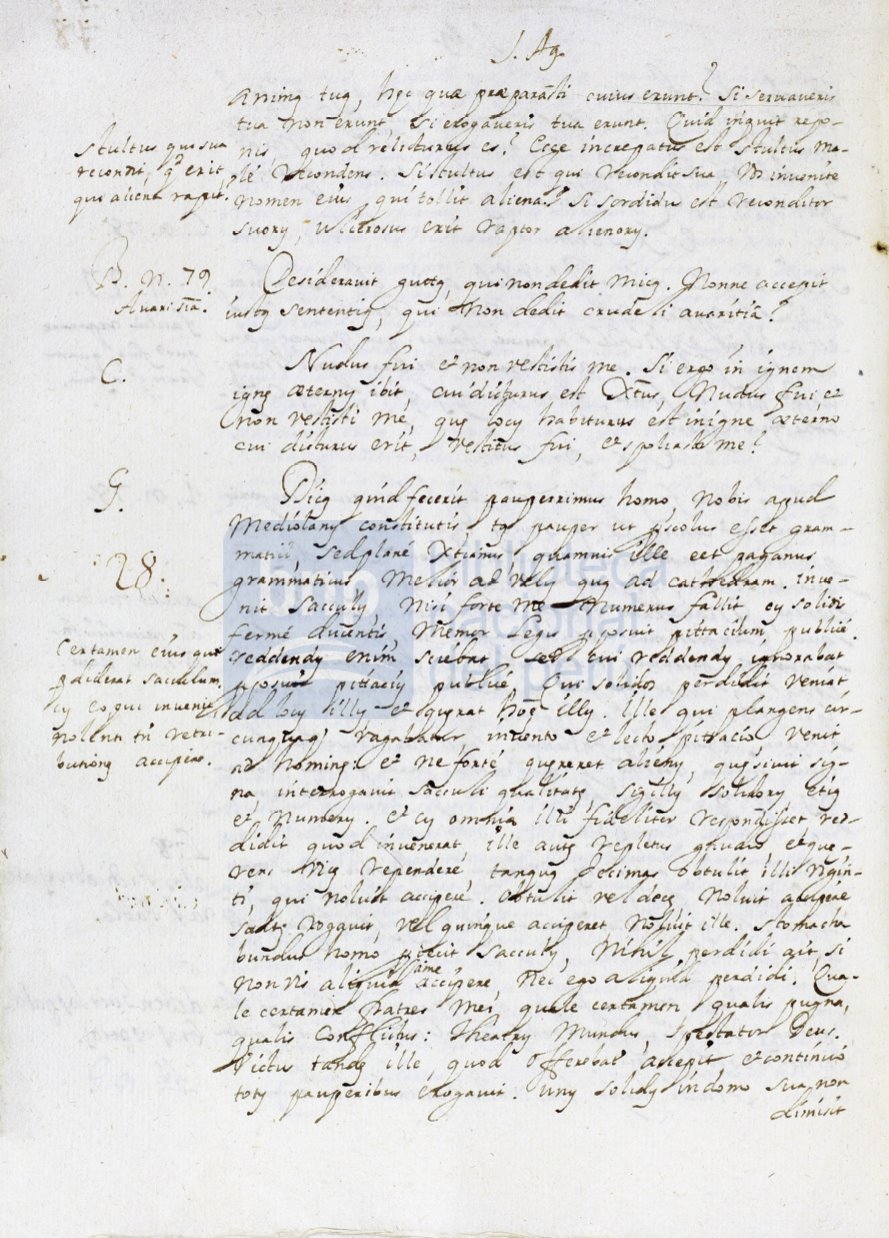 S. Ag.
animę tuę, hęc quæ præparasti cuius erunt? Si servaveris
tua non erunt si erogaveris tua erunt. Quid inquit repo-
nis, quod relicturus es? Ecce increpatus est stultus ma-
lé recondens. Si stultus est qui recondit sua, Vos invenite
nomen eius, qui tollit aliena? si sordidus est reconditor
suorꝝ, ulcerosus erit raptor alienorꝝ.
Stultus qui sua
recondit, qd erit
qui aliena rapit?
B. n. 79.
Avaritiã.
Desideravit guttą, qui non dedit micą. Nonne accepit
iustą sententią, qui non dedit crudeli avaritiã?
C.
Nudus fui et non vestisti me. Si ergo in ignem
ignę æternų ibit, cui dicturus est Xtus, Nudus fui et
non vestisti me, quę locų habiturus est in igne æterno
cui dicturus erit, vestitus fui, et spoliasti me?
G.
28.
Dicą quid fecerit pauperrimus homo, nobis apud
Mediolanų constitutis tą pauper ut pscolus esset gram-
matici sed plané Xtianus quamvis ille eet paganus
grammaticus melior ad velų quą ad cathedram. Inve-
nit sacculų, nisi forte me numerus fallit cų solidis
fermé ducentis, memor legis pposuit pittacium publicé.
reddendų enim sciebat sed cui reddendų ignorabat
pposuit pitacių publicé Qui solidos perdidit veniat
ad locų illų et quęrat hoęm illų. Ille qui plangens cir-
cunquaq vagabatur invento et lecto pittacio venit
ad hominę: et ne forté quęreret alienų, quęsivit sig-
na, interrogavit sacculi qualitatę, sigillų, solidorų etią
et numerų. et cų omnia illi fideliter respondisset red-
didit quod invenerat, ille autę repletus gaudio, et quę-
rens vicę rependeré, tanquą decimas obtulit illi vigin-
ti, qui noluit accipere. obtulit vel decę, noluit accipere
saltę rogavit, vel quinque acciperet, noluit ille. stomacha
bundus homo, piecit sacculų, Nihil perdidi ait, si
non vis aliquid a me accipere, nec ego aliquid perdidi. Qua-
le certamen fratres mei, quale certamen qualis pugna,
qualis conflictus: theatrų mundus, spectator Deus.
Victus tandę ille, quod offerebat accepit et continuó
totų pauperibus erogavit. unų solidų in domo sua non
dimisit
Certamen eius qui
pdiderat sacculum
cų eo qui invenit
nolenti tñ retri-
butionę accipere.